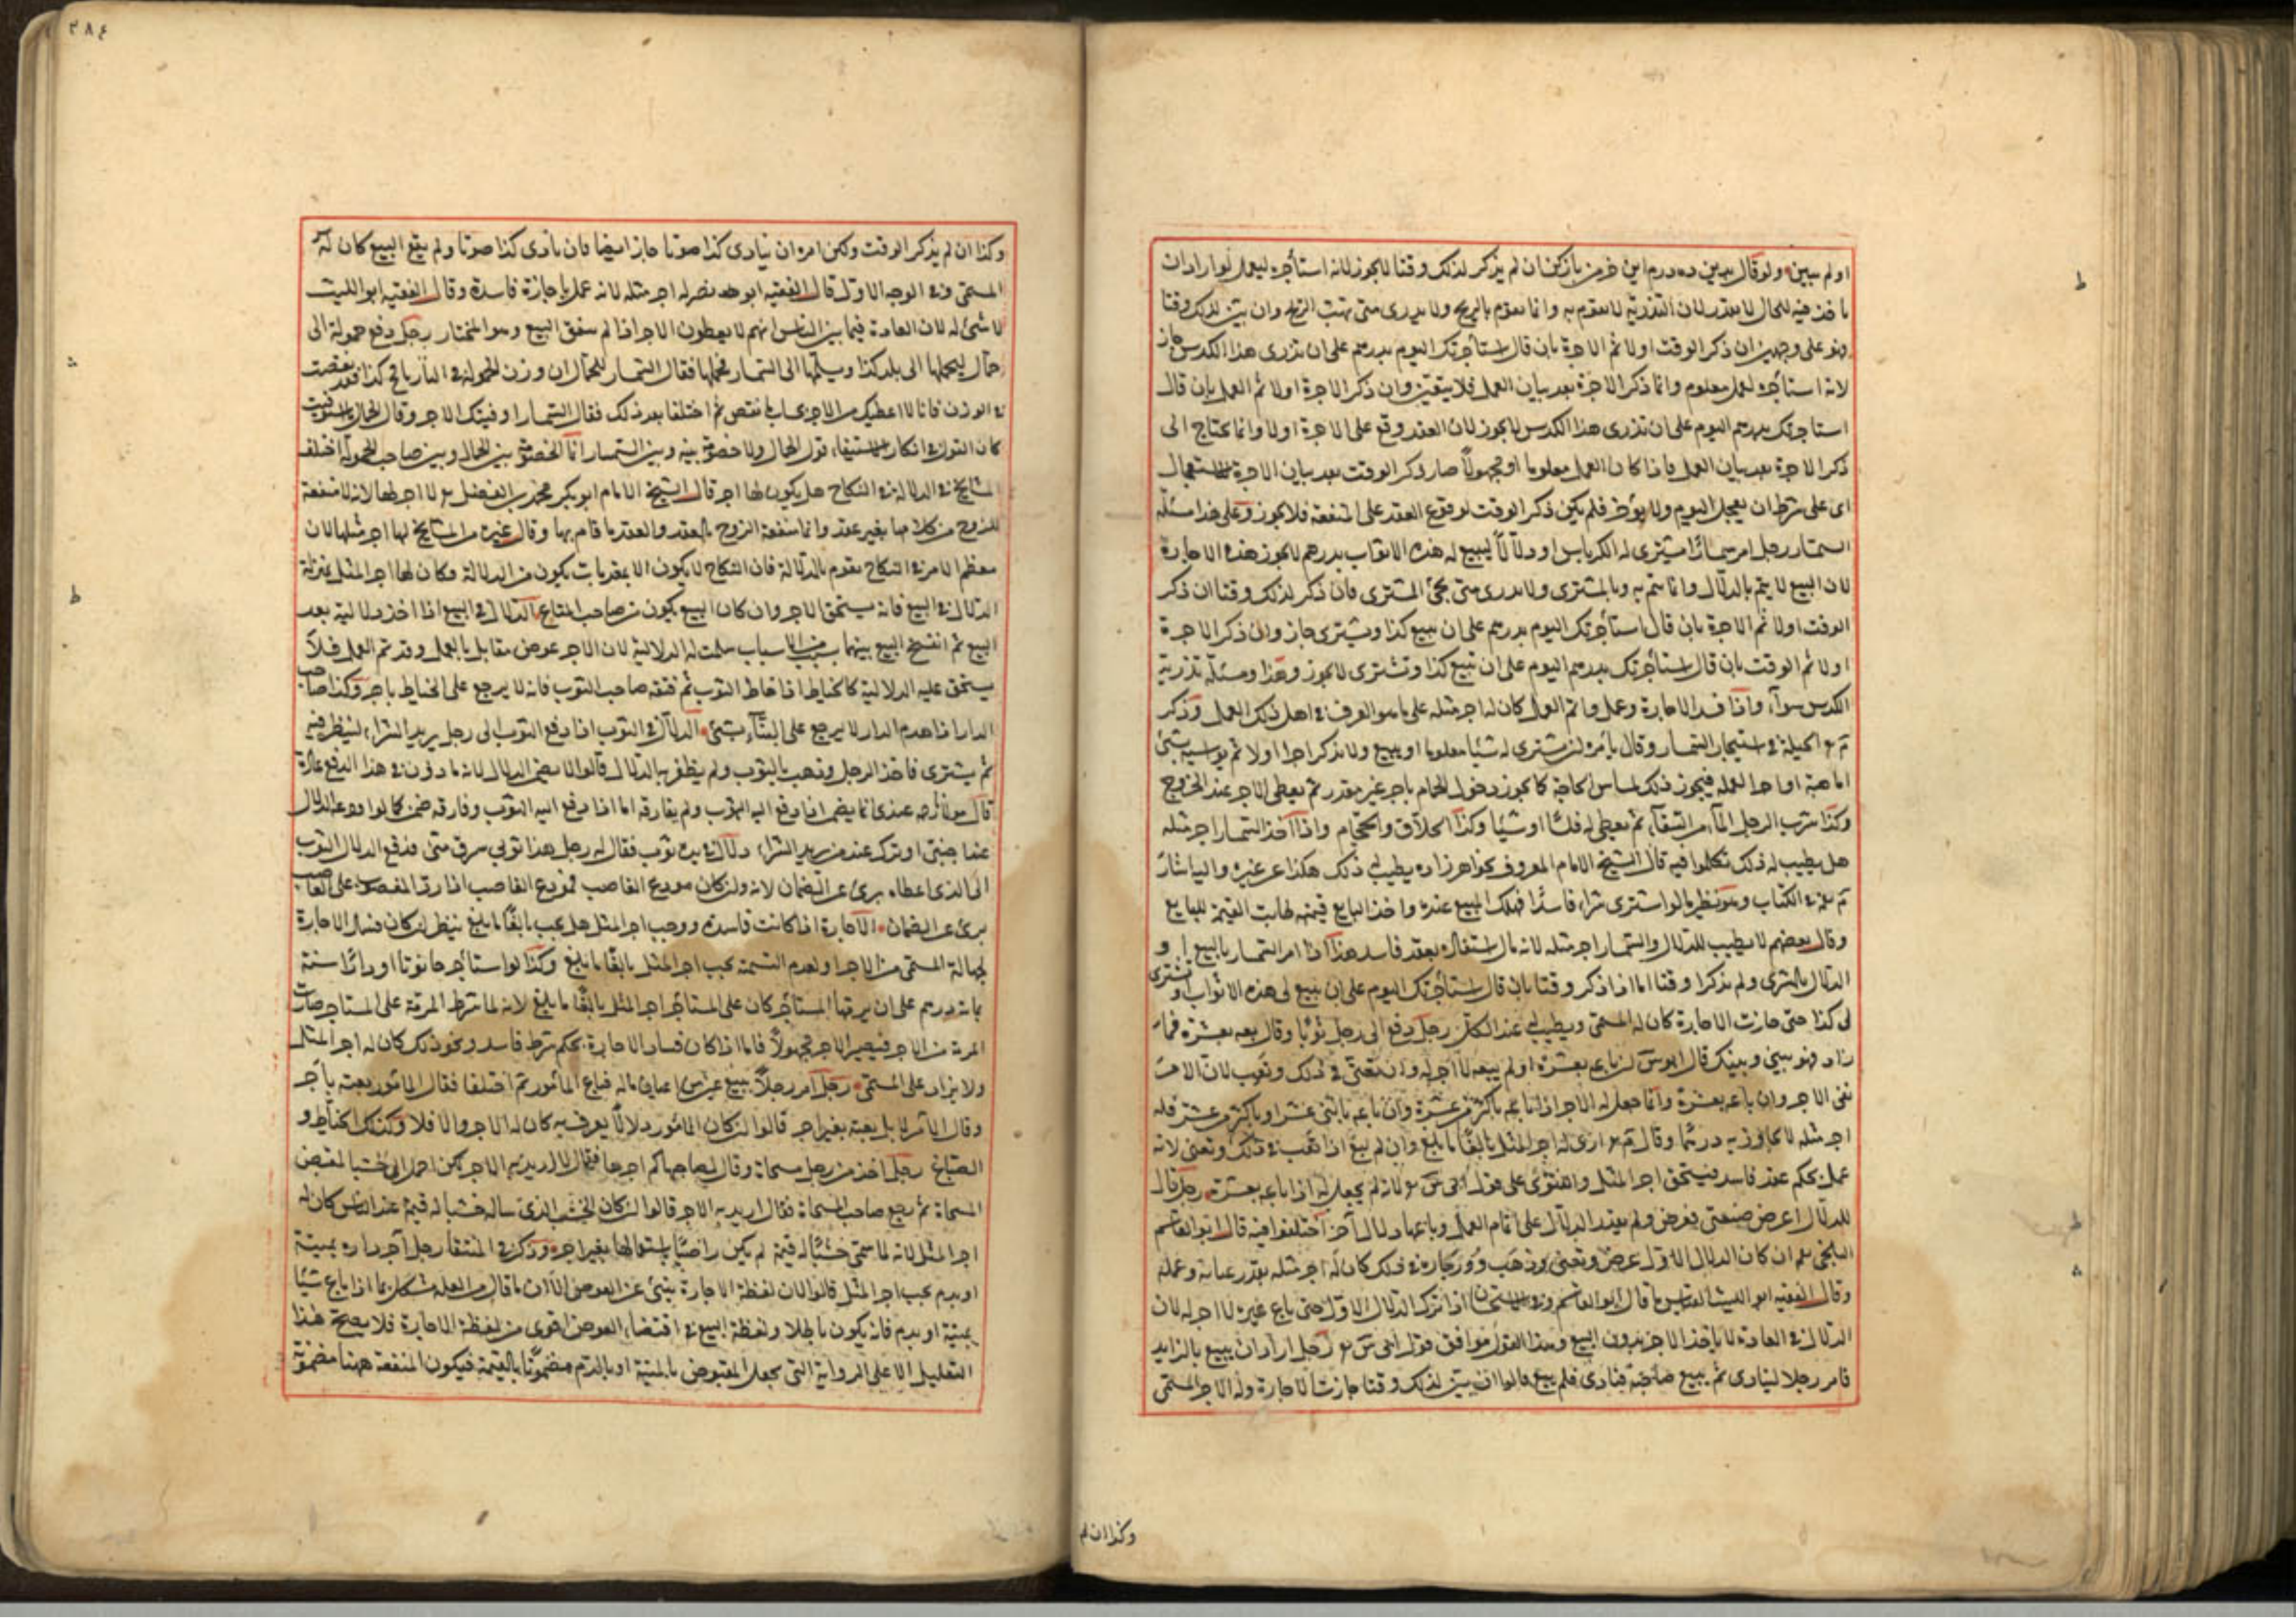 او لم يبين ولو قال بدين ده درم اين خرمن باز كن ان لم يذكر لذلك وقتا لا يجوز لانه استأجره ليعمل لو اراد ان
ياخذ فيه للحال لا يقدر لان التذرية لا تقوم به وانما تقوم بالريح ولا يدرى متى تهب الريح وان بين لذلك وقتا
فهو على وجهين ان ذكر الوقت اولا ثم الاجرة بان قال استأجرتك اليوم بدرهم على ان تذرى هذا الكدس جاز
لانه استأجره لعمل معلوم وانما ذكر الاجرة بعد بيان العمل فلا يتغير وان ذكر الاجرة اولا ثم العمل بان قال
استاجرتك بدرهم اليوم على ان تذرى هذا الكدس لا يجوز لان العقد وقع على الاجرة اولا وانما يحتاج الى
ذكر الاجرة بعد بيان العمل فاذا كان العمل معلوما او مجهولا صار ذكر الوقت بعد بيان الاجرة للاستعجال
اى على شرط ان يعجل اليوم ولا يؤخر فلم يكن ذكر الوقت لوقوع العقد على المنفعة فلا يجوز وعلى هذا مسئلة
السمسار رجل امر سمسارا ليشترى له الكرابيس او دلالا ليبيع له هذه الاثواب بدرهم لا يجوز هذه الاجارة
لان البيع لا يتم بالدلال وانما يتم به وبالمشترى ولا يدرى متى يجئ المشترى فان ذكر لذلك وقتا ان ذكر
الوقت اولا ثم الاجرة بان قال استأجرتك اليوم بدرهم على ان تبيع كذا وتشترى جاز وان ذكر الاجرة
اولا ثم الوقت بان قال استأجرتك بدرهم اليوم على ان تبيع كذا وتشترى لا يجوز وهذا ومسئلة تذرية
الكدس سواء واذا فسد الاجارة وعمل واتم العمل كان له اجر مثله على ما هو العرف فى اهل ذلك العمل وذكر
الحيلة فى استيجار السمسار وقال يأمره ان يشترى له شيأ معلوما او يبيع ولا يذكر اجرا اولا ثم يواسيه بشئ
اما هبة او اجرا لعمله فيجوز ذلك لمساس الحاجة كما يجوز دخول الحمام باجر غير مقدر ثم يعطى الاجر عند الخروج
وكذا شرب الرجل الماء من السقاء ثم يعطى له فلسا او شيأ وكذا الحلاق والحجام واذا اخذ السمسار اجر مثله
هل يطيب له ذلك تكلموا فيه قال الشيخ الامام المعروف بخواهر زاده يطيب له ذلك هكذا عن غيره واليه اشار
فى الكتاب وهو نظير ما لو اشترى شراء فاسدا فهلك المبيع عنده واخذ البايع قيمته طابت القيمة للبايع
وقال بعضهم لا يطيب للدلال والسمسار اجر مثله لانه مال استفاده بعقد فاسد هذا اذا امر السمسار بالبيع او
الدلال بالشرى ولم يذكرا وقتا اما اذا ذكر وقتا بان قال استأجرتك اليوم على ان تبيع لى هذه الاثواب او تشترى
لى كذا حتى جازت الاجارة كان له المسمى ويطيب له عند الكل رجل دفع الى رجل ثوبا وقال بعه بعشرة فما
زاد فهو بينى وبينك قال ابو س ان باعه بعشرة او لم يبعه لا اجر له وان تعنى فى ذلك وتعب لان الامر
نفى الاجر وان باعه بعشرة وانما جعل له الاجر اذا باعه باكثر من عشرة وان باعه باثنى عشر او باكثر من عشر فله
اجر مثله لا يجاوز به درهما وقال م ارى له اجر المثل بالغا ما بلغ وان لم يبع اذا تعب فى ذلك وتعنى لانه
عمل بحكم عقد فاسد فيستحق اجر المثل والفتوى على قول ابى س لانه لم يجعل له اذا باعه بعشرة رجل قال
للدلال اعرض ضيعتى فعرض ولم يقدر الدلال على اتمام العمل وباعها دلال آخر اختلفوا فيه قال ابو القاسم
البلخى ان كان الدلال الاول عرض وتعنى وذهب له فى ذلك كان له اجر مثله بقدر عنائه وعمله
وقال الفقيه ابو الليث القياس ما قال ابو القاسم وفى الاستحسان اذا ترك الدلال الاول حتى باع غيره لا اجر له لان
الدلال فى العادة لا ياخذ الاجر بدون البيع وهذا القول موافق قول ابى س رجل اراد ان يبيع بالزايد
فامر رجلا لينادى ثم يبيع صاحبه فنادى فلم يبع قالوا ان بين لذلك وقتا جازت الاجارة وله الاجر المسمى
وكذا ان لم
٣٨٤
وكذا ان لم يذكر الوقت ولكن امره ان ينادى كذا صوتا جاز ايضا فان نادى كذا صوتا ولم يقع البيع كان له
المسمى وفى الوجه الاول قال الفقيه ابو نصر له اجر مثله لانه عمل باجارة فاسدة وقال الفقيه ابو الليث
لا شئ له لان العادة فيما بين الناس انهم لا يعطون الاجر اذا لم يتفق البيع وهو المختار رجل دفع حمولة الى
حمال ليحملها الى بلد كذا ويسلمها الى السمسار فحملها فقال السمسار للحمال ان وزن الحمولة فى البارنامج كذا فقد نقصت
فى الوزن فانا لا اعطيك من الاجر بحساب ما نقص ثم اختلفا بعد ذلك فقال السمسار اوفيتك الاجر وقال الحمال ما استوفيت
كان القول فى انكار الاستيفاء قول الحمال ولا خصومة بينه وبين السمسار انما الخصومة بين الحمال وبين صاحب الحمولة اختلف
المشايخ فى الدلالة فى النكاح هل يكون لها اجر قال الشيخ الامام ابو بكر محمد بن الفضل لا اجر لها لانه لا منفعة
للزوج من كلامها بغير عقد وانما منفعة الزوج بالعقد والعقد ما قام بها وقال غيره من المشايخ لها اجر مثلها لان
معظم الامر فى النكاح يقوم بالدلالة فان النكاح لا يكون الا بمقدمات يكون من الدلالة فكان لها اجر المثل بمنزلة
الدلال فى البيع فانه يستحق الاجر وان كان البيع يكون من صاحب المتاع الدلال فى البيع اذا اخذ دلاليته بعد
البيع ثم انفسخ البيع بينهما بسبب من الاسباب سلمت له الدلالية لان الاجر عوض مقابل بالعمل وقد تم العمل فلا
يستحق عليه الدلالية كالخياط اذا خاط الثوب ثم فتقه صاحب الثوب فانه لا يرجع على الخياط باجر وكذا صاحب
الدار اذا هدم الدار لا يرجع على البناء بشئ الدلال فى الثوب اذا دفع الثوب الى رجل يريد الشراء لينظر فيه
ثم يشترى فاخذ الرجل وذهب بالثوب ولم يظفر به الدلال قالوا لا يضمن الدلال لانه ماذون فى هذا الدفع عادة
قال مولانا رحمه عندى انما يضمن اذا دفع اليه الثوب ولم يفارقه اما اذا دفع اليه الثوب وفارقه ضمن كما لو اودعه الدلال
عند اجنبى او تركه عند من يريد الشراء دلال فى يده ثوب فقال له رجل هذا ثوبى سرق منى فدفع الدلال الثوب
الى الذى اعطاه برئ عن الضمان لانه وان كان مودع الغاصب فمودع الغاصب اذا رد المغصوب على الغاصب
برئ عن الضمان الاجارة اذا كانت فاسدة ووجب اجر المثل هل يجب بالغا ما بلغ ينظر ان كان فساد الاجارة
لجهالة المسمى من الاجر او لعدم التسمية يجب اجر المثل بالغا ما بلغ وكذا لو استأجر حانوتا او دارا سنة
بمائة درهم على ان يرمها المستأجر كان على المستأجر اجر المثل بالغا ما بلغ لانه لما شرط المرمة على المستاجر صارت
المرمة من الاجر فيصير الاجر مجهولا فاما اذا كان فساد الاجارة بحكم شرط فاسد ونحو ذلك كان له اجر المثل
ولا يزاد على المسمى رجل امر رجلا ببيع عين من اعيان ماله فباع المأمور ثم اختلفا فقال المأمور بعته بأجر
وقال الآمر لا بل بعته بغير اجر قالوا ان كان المأمور دلالا يعرف به كان له الاجر والا فلا وكذلك الخياط و
الصباغ رجل اخذ من رجل مسحاة وقال لصاحبها كم اجرها فقال لا اريد به الاجر لكن احمل الى خشبا لمقبض
المسحاة ثم رجع صاحب المسحاة فقال اريد به الاجر قالوا ان كان الخشب الذى سأله خشبا له قيمة عند الناس كان له
اجر المثل لانه لما سمى خشبا له قيمة لم يكن راضيا باستعمالها بغير اجر وذكر فى المنتقا رجل آجر داره بميتة
او بدم يجب اجر المثل قالوا لان لفظة الاجارة ينبئ عن العوض الا ان ما قال من العلة مشكل بما اذا باع شيأ
بميتة او بدم فانه يكون باطلا ولفظة البيع فى اقتضاء العوض اقوى من لفظة الاجارة فلا يصح هذا
التعليل الا على الرواية التى يجعل المقبوض بالميتة او بالدم مضمونا بالقيمة فيكون المنفعة ههنا مضمونة